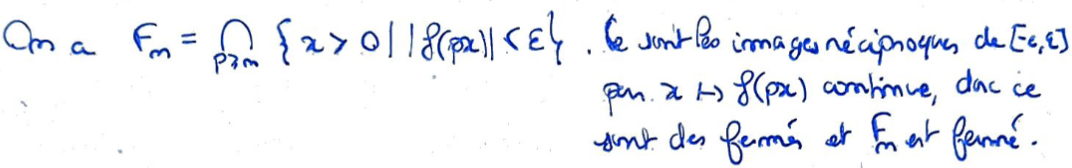 On a $F_n = \bigcap_{p \geq n} \{x > 0 \mid |f(px)| \leq \varepsilon\}$. Ce sont les images réciproques de $[-\varepsilon, \varepsilon]$
par $x \mapsto f(px)$ continue, donc ce
sont des fermés et $F_n$ est fermé.